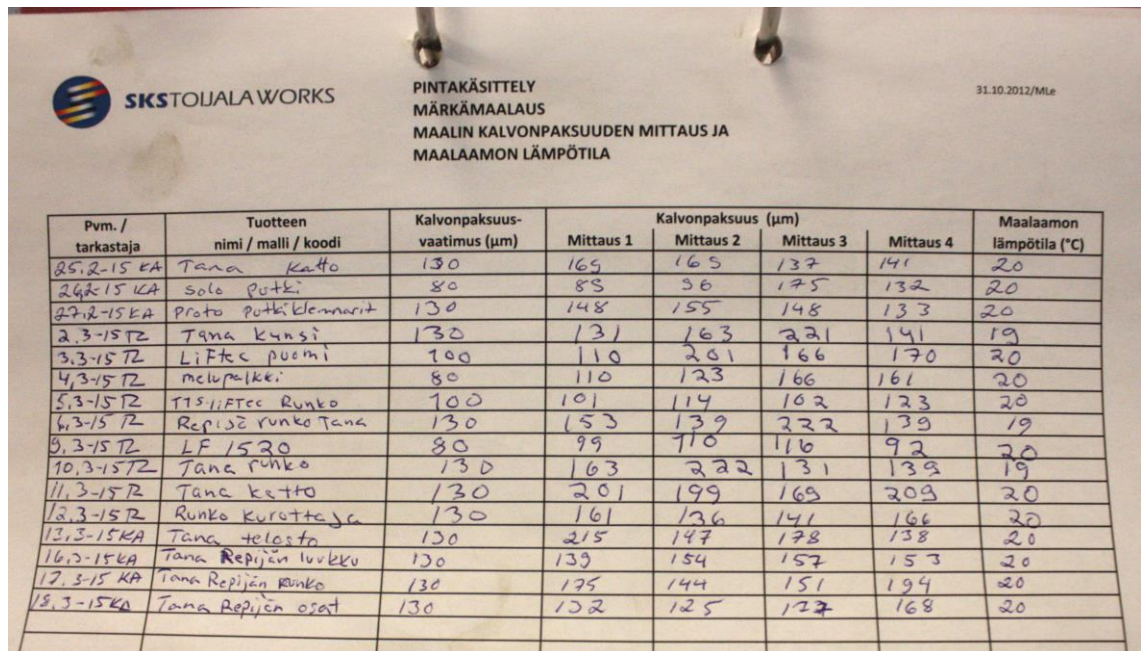 SKS TOIJALA WORKS
PINTAKÄSITTELY
MÄRKÄMAALAUS
MAALIN KALVONPAKSUUDEN MITTAUS JA
MAALAAMON LÄMPÖTILA
31.10.2012/MLe
Pvm. / tarkastaja Tuotteen nimi / malli / koodi Kalvonpaksuus-vaatimus (µm) Kalvonpaksuus (µm) Maalaamon lämpötila (°C)
Mittaus 1 Mittaus 2 Mittaus 3 Mittaus 4
25.2-15 KA Tana Katto 130 169 169 137 141 20
26.2-15 KA Solo putki 80 89 96 175 132 20
27.2-15 KA Proto putkiklemmarit 130 148 155 148 133 20
2.3-15 TZ Tana Kynsi 130 131 163 221 141 19
3.3-15 TZ Liftec puomi 100 110 201 166 170 20
4.3-15 TZ melupalkki 80 110 123 166 161 20
5.3-15 TZ Liftec Runko 100 101 114 102 123 20
6.3-15 TZ runko Tana 130 153 139 222 139 19
9.3-15 TZ LF 1520 80 99 110 116 92 20
10.3-15 TZ Tana runko 130 163 222 131 139 19
11.3-15 TZ Tana katto 130 201 199 169 209 20
12.3-15 TZ Runko Kurottaja 130 161 136 141 166 20
13.3-15 KA Tana telasto 130 215 147 178 138 20
16.3-15 KA Tana Repijän luukku 130 139 154 157 153 20
17.3-15 KA Tana Repijän Runko 130 175 144 151 194 20
18.3-15 KA Tana Repijän osat 130 132 125 168 20